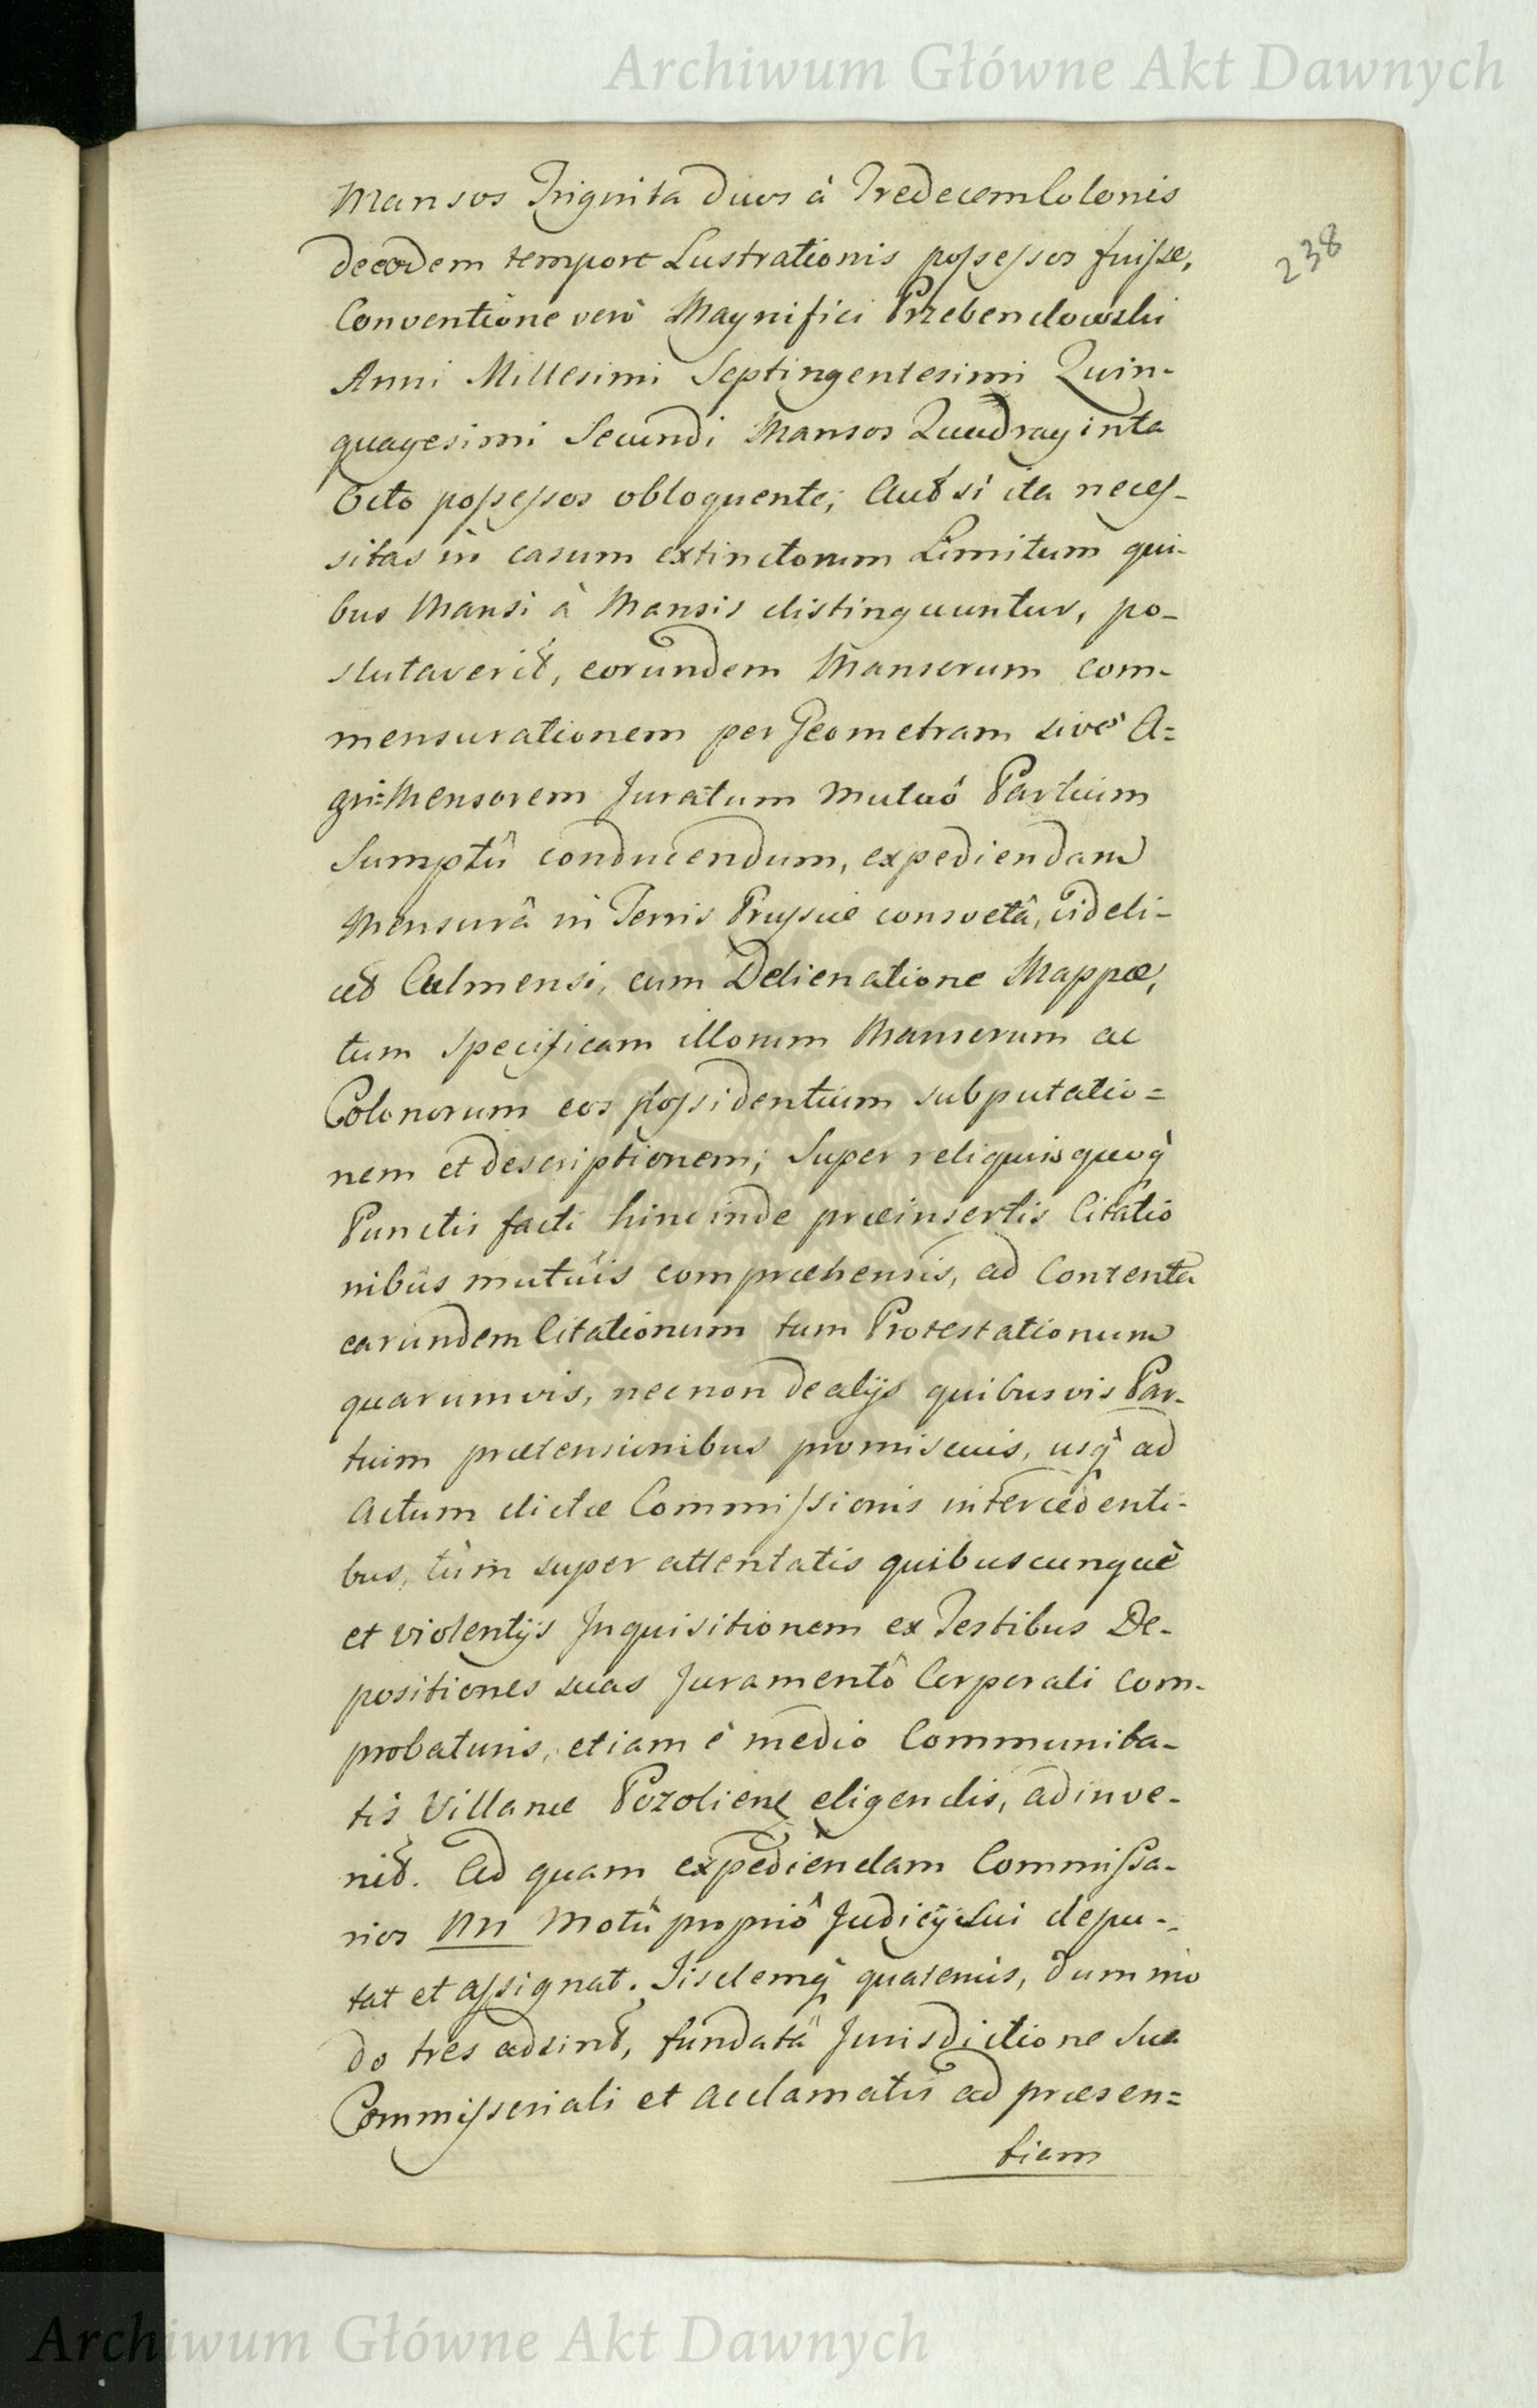 Archiwum Główne Akt Dawnych
238
Mansos Triginta duos à Tredecem Colonis
de eodem tempore Lustrationis possessos fuisse,
Conventione verò Magnifici Przebendowski
Anni Millesimi Septingentesimi Quin-
quagesimi Secundi Mansos Quadraginta
Octo possessos obloquente; Aut si ita neces-
sitas in casum extinctorum Limitum qui-
bus Mansi à Mansis distinguuntur, po-
stulaverit, eorundem Mansorum com-
mensurationem per Geometram sivè A=
gri=Mensorem Juratum mutuô Partium
Sumptû conducendum, expediendam
Mensurâ in Terris Prussiæ consvetâ, videli-
cet Culmensi, cum Delienatione Mappæ,
tum specificam illorum Mansorum ac
Colonorum eos possidentium subputatio=
nem et descriptionem; Super reliquis quoq̀
Punctis facti hinc inde præinsertis Citatio
nibûs mutuis compræhensis, ad Contenta
earundem Citationum tum Protestationum
quarumvis, nec non de alijs quibusvis Par-
tium prætensionibus promiscuis, usq̀ ad
Actum dictæ Commissionis intercedenti-
bus, tùm super attentatis quibuscunquè
et violentijs Inquisitionem ex Testibus De-
positiones suas Juramentô Corporali com-
probaturis, etiam è medio Communita-
tis Villanæ Pozoliene eligendis, adinve-
nit. Ad quam expediendam Commissa-
rios NN Motû propriô Judicij Sui depu-
tat et assignat. Iisdemq̀ quatenùs, dummo
do tres adsint, fundatâ Jurisdictione sua
Commisseriali et acclamatis ad præsen=
tiam
Archiwum Główne Akt Dawnych